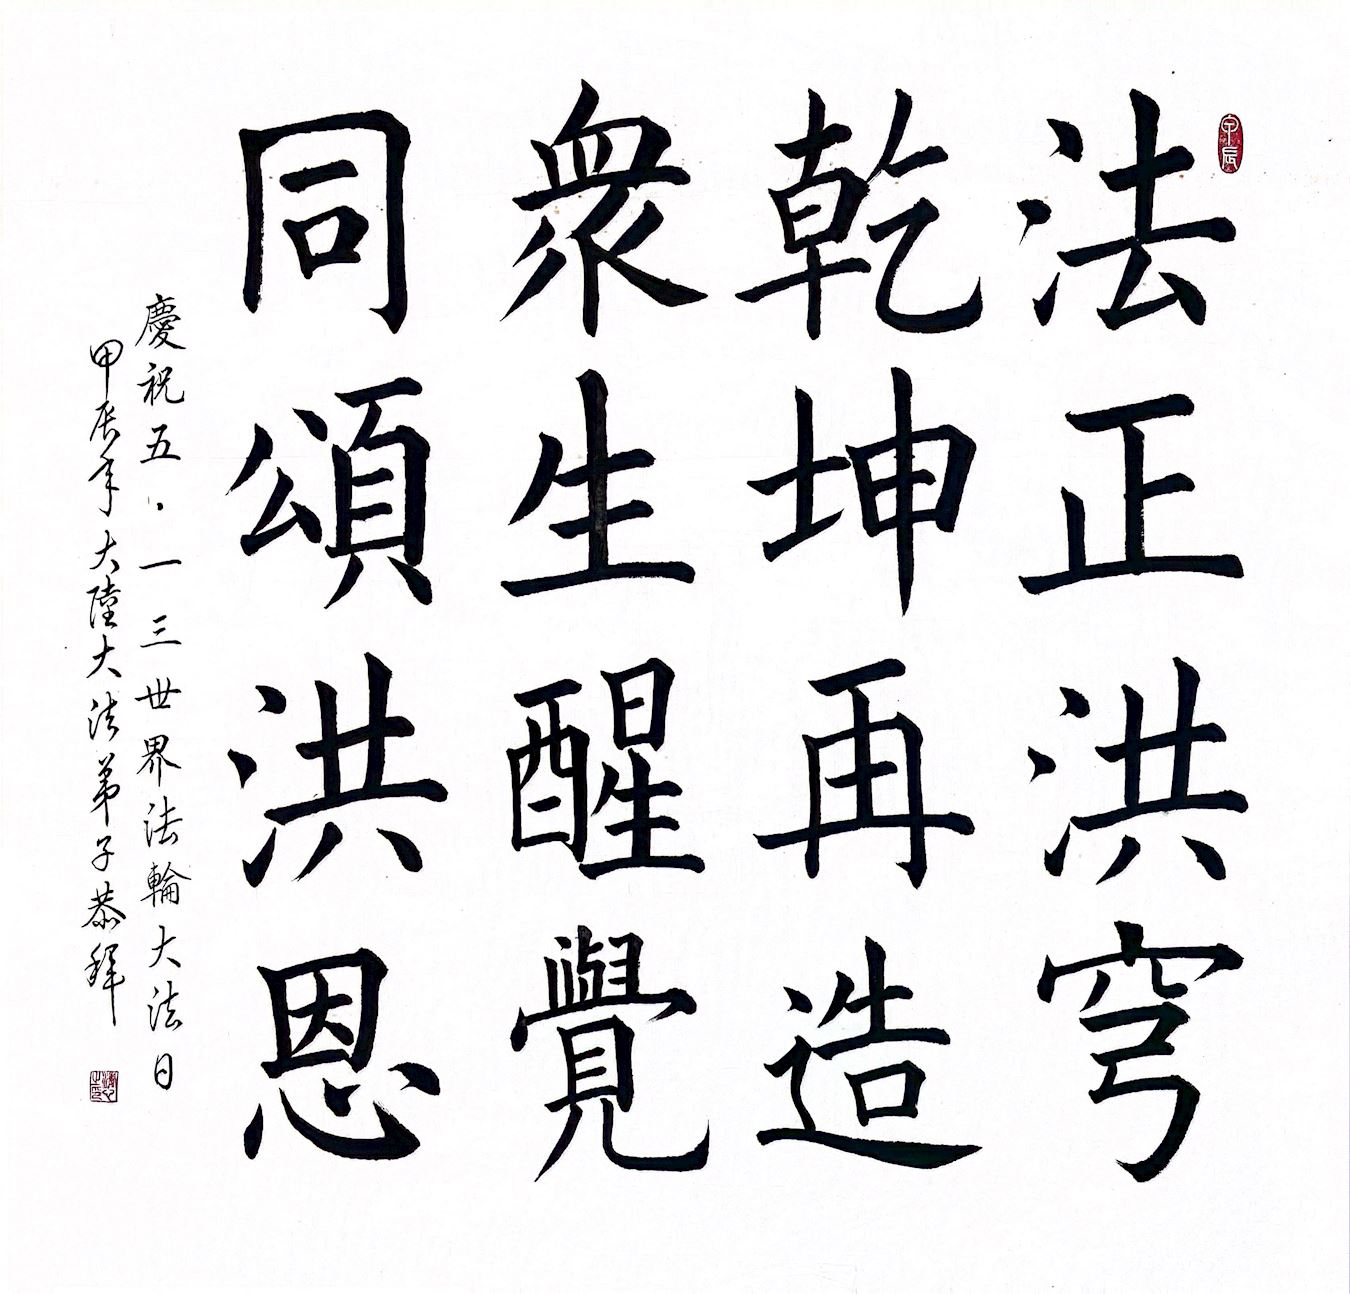 法正洪穹
乾坤再造
衆生醒覺
同頌洪恩
慶祝五·一三世界法輪大法日
甲辰年大陸大法弟子恭拜
甲辰